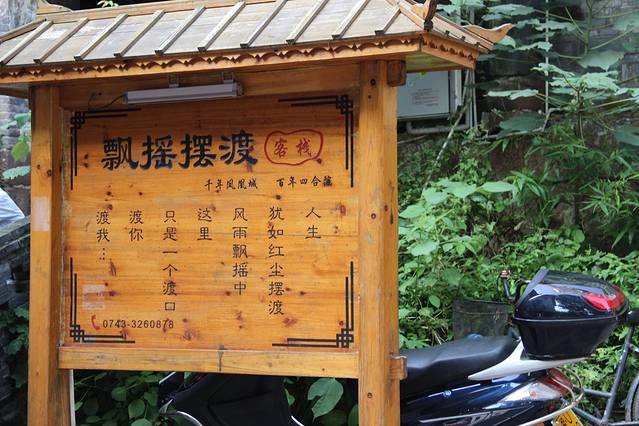 飘摇摆渡 客栈
千年凤凰城 百年四合院
人生
犹如红尘摆渡
风雨飘摇中
这里
只是一个渡口
渡你
渡我…
0743-3260878